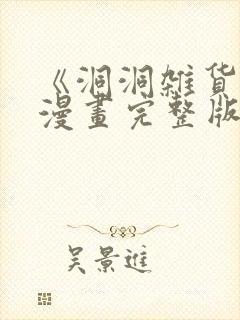 《洞洞雑货
漫畫完整版
吴景進